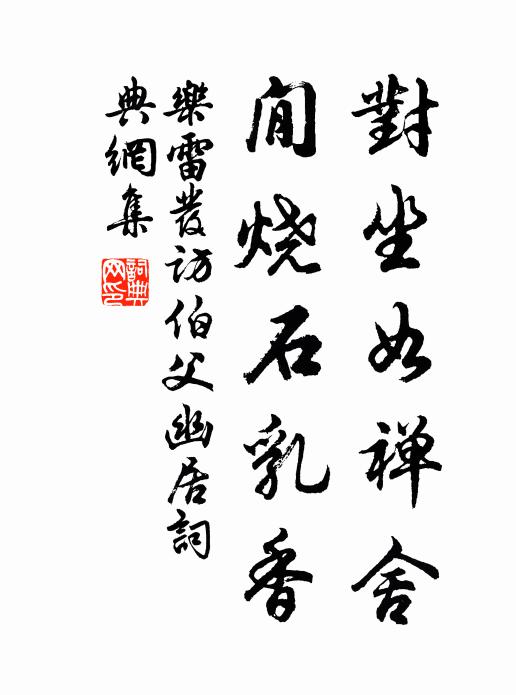 對坐如禅舍
閒烧石乳香
樂雷發訪伯父幽居詞
典網集
詞典网印